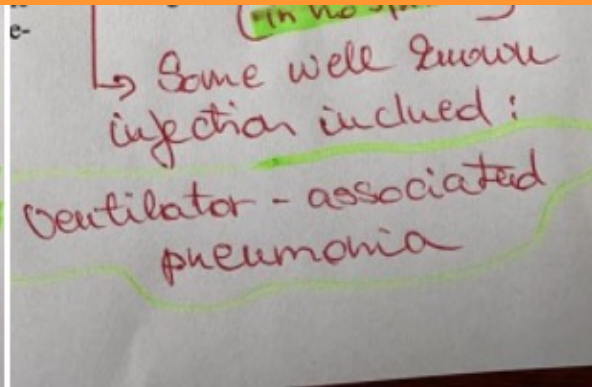 e-
(in no
↳ Some well known
injection inclued :
Ventilator - associated
pneumonia